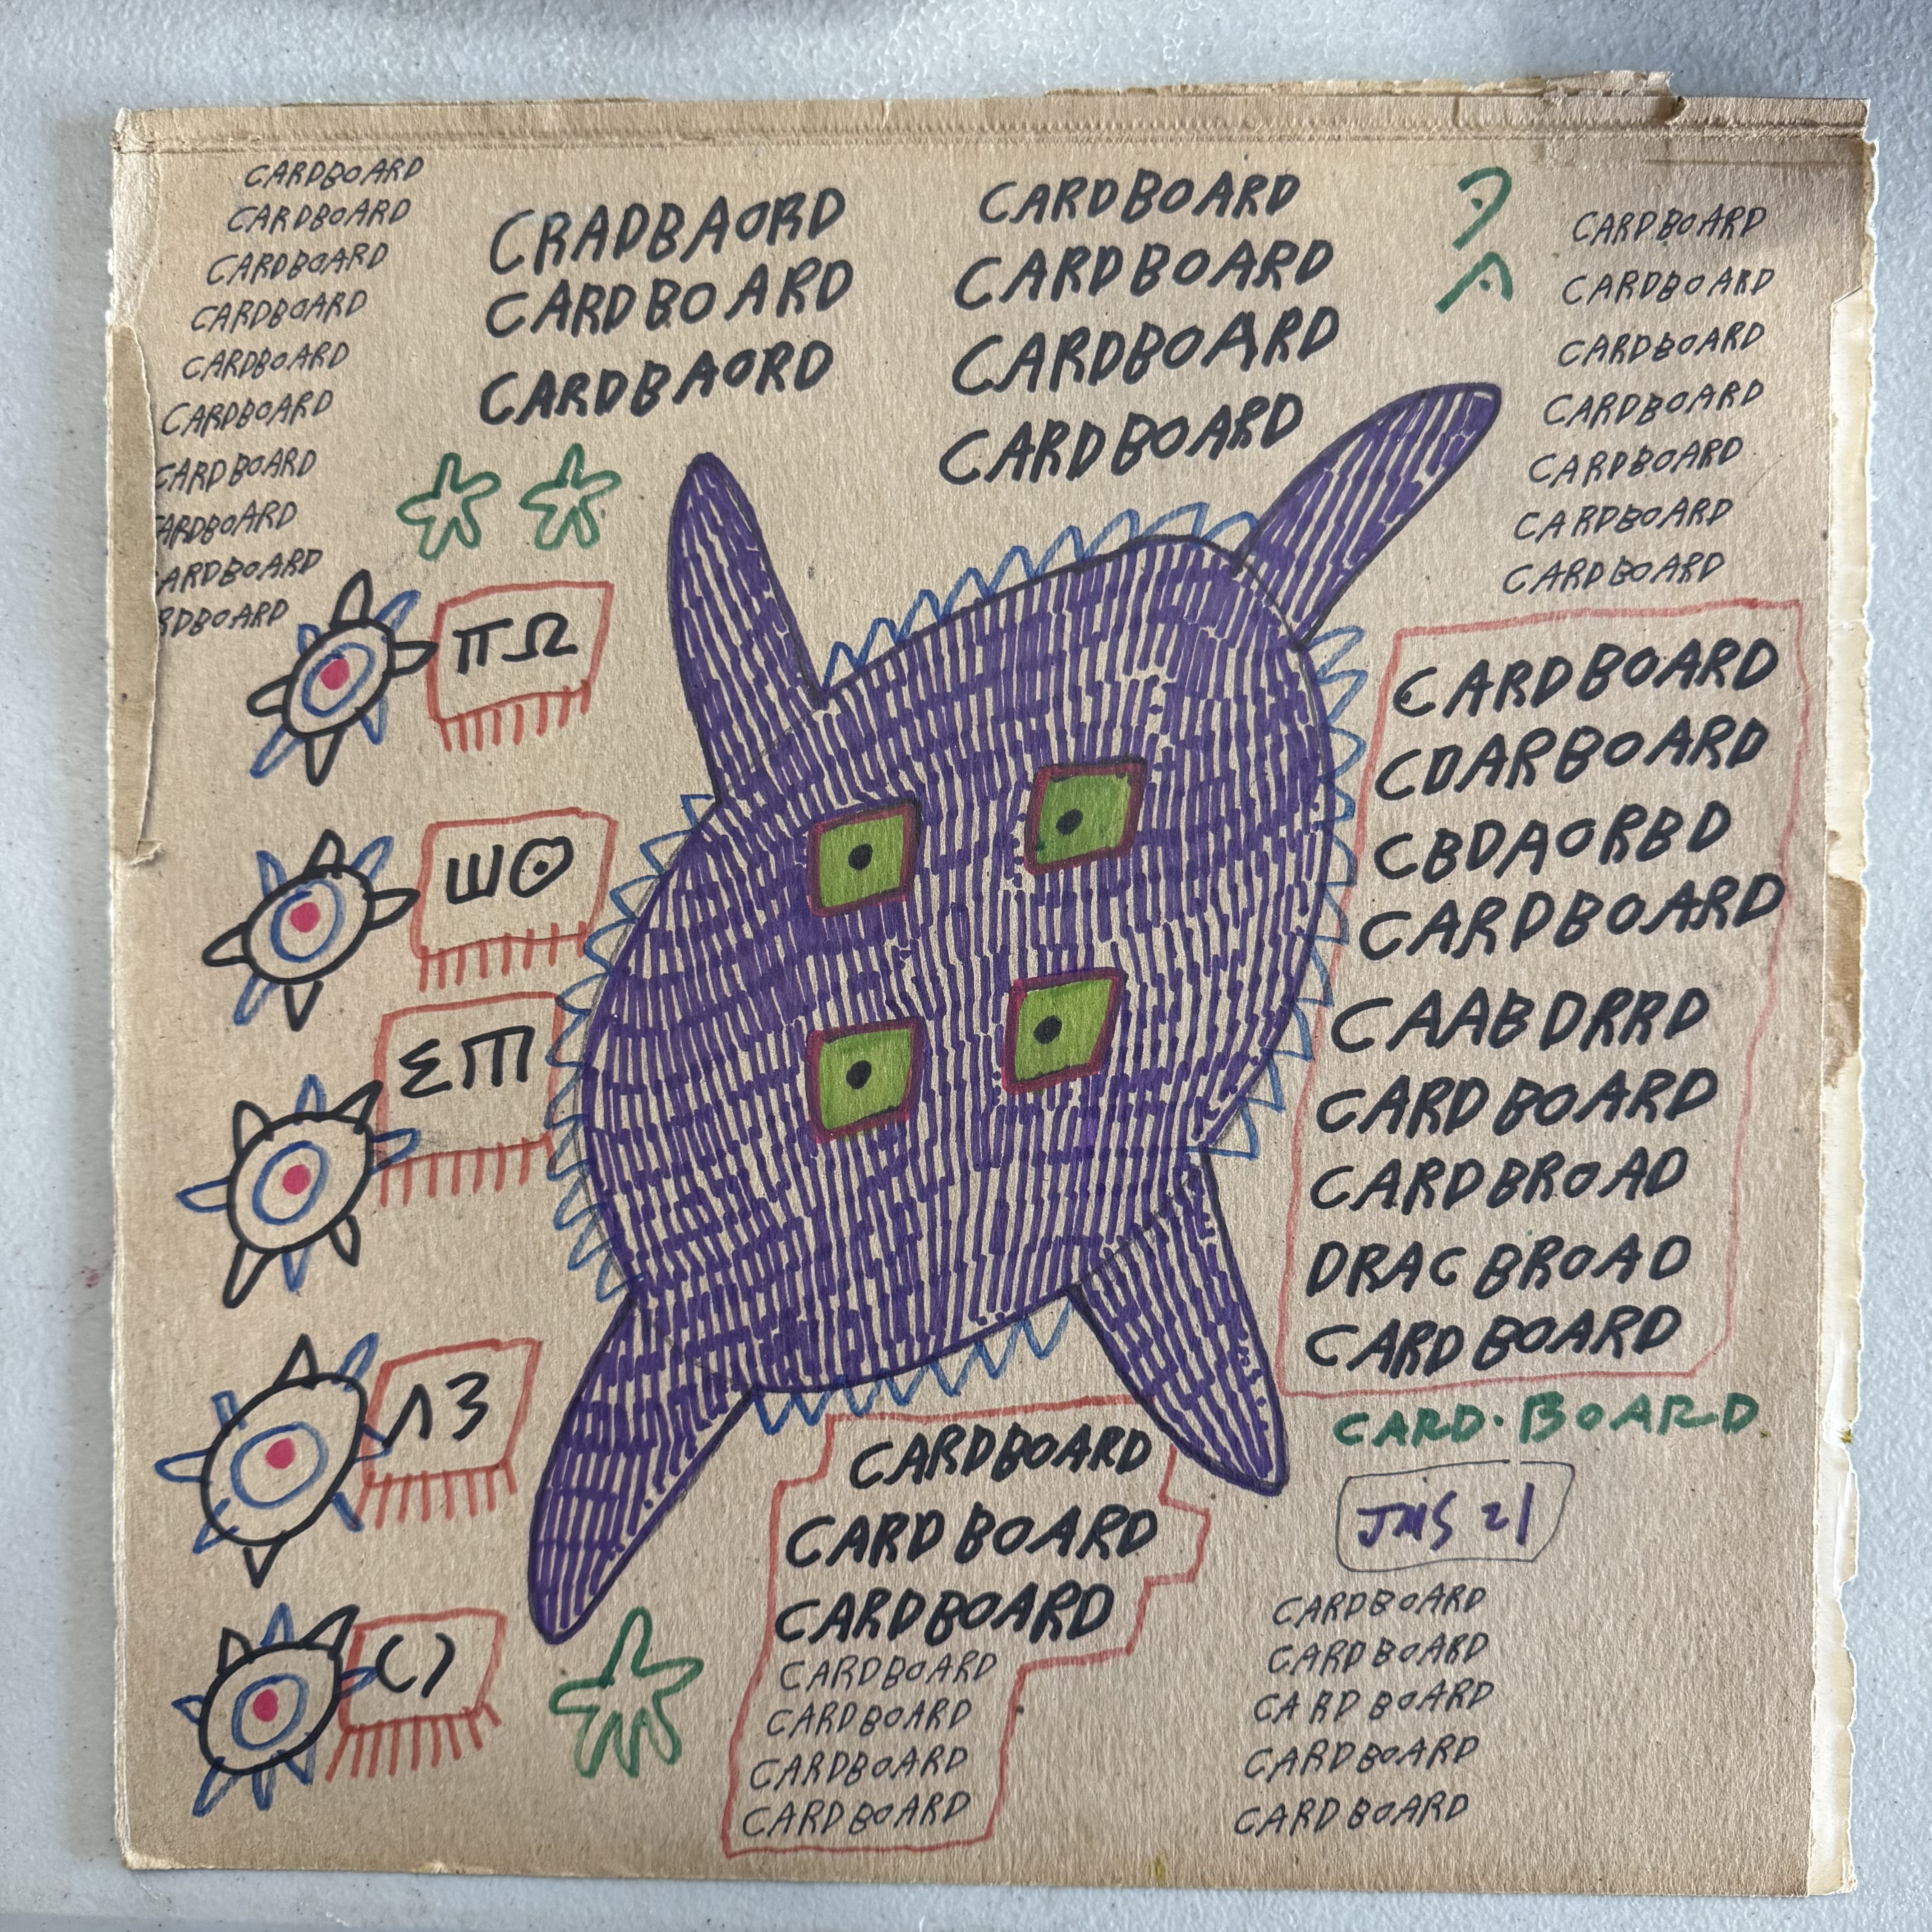 CARDBOARD
CARDBOARD
CARDBOARD
CARDBOARD
CARDBOARD
CARDBOARD
CARDBOARD
ARDBOARD
ARDBOARD
RDBOARD
CRADBAORD
CARDBOARD
CARDBAORD
CARDBOARD
CARDBOARD
CARDBOARD
CARDBOARD
CARDBOARD
CARDBOARD
CARDBOARD
CARDBOARD
CARDBOARD
CARDBOARD
CARDBOARD
ΠΩ
Шʘ
ΣП
Λ3
()
CARDBOARD
CDARBOARD
CBDAORBD
CARDBOARD
CAABDRRD
CARDBOARD
CARDBROAD
DRACBROAD
CARDBOARD
CARD·BOARD
JMS 21
CARDBOARD
CARDBOARD
CARDBOARD
CARDBOARD
CARDBOARD
CARDBOARD
CARDBOARD
CARDBOARD
CARDBOARD
CARDBOARD
CARDBOARD
CARDBOARD